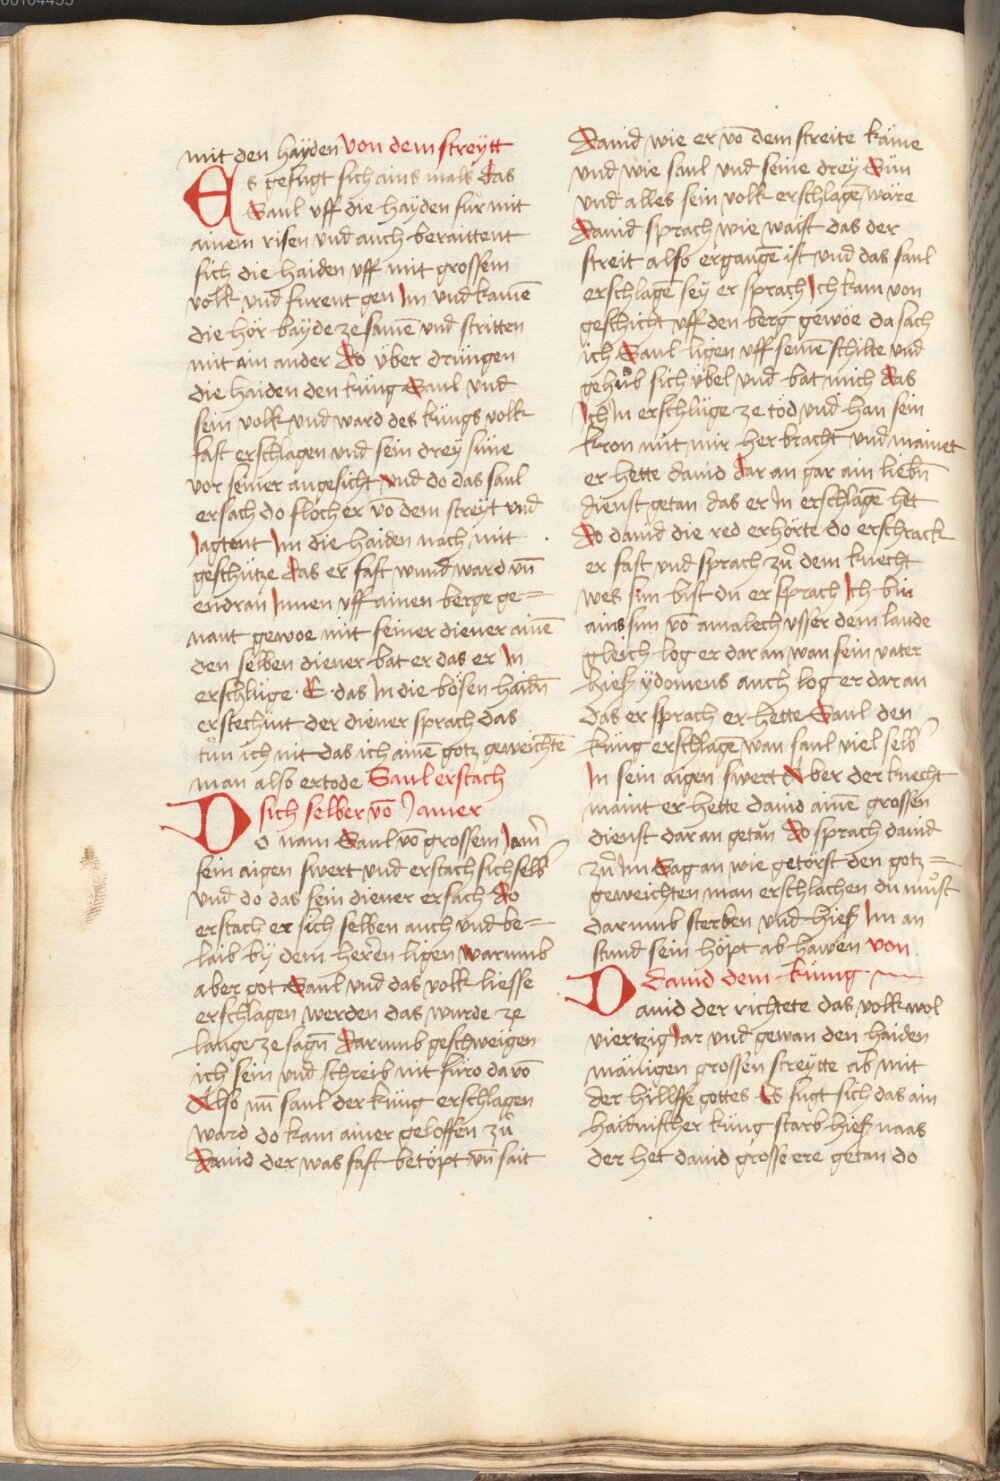 mit den hayden von dem streytt
Es gefugt sich ains mals das
Saul vff die hayden für mit
ainem risen vnd auch beraittent
sich die haiden vff mit grossem
volk vnd furent gen Im vnd kamē
die hör bayde ze samē vnd stritten
mit ain ander Do über drungen
die haiden den küng Saul vnd
sein volk vnd ward des küngs volk
fast erschlagen vnd sein drey süne
vor seiner angesicht vnd do das saul
ersach do floch er vō dem streyt vnd
Jagtent Im die haiden nach mit
geschütze das er fast wund ward vn̄
endran Innen vff ainen berge ge=
nant gewoe mit seiner diener ainē
den selben diener bat er das er In
erschlüge · E · das In die bösen haidn̄
erstechint der diener sprach das
tün ich nit das ich ainē gotz geweichtē
man also ertode Saul erstach
sich selber vō Jamer
Do nam Saul vō grossem Jam̄
sein aigen swert vnd erstach sich selb
vnd do das sein diener ersach Do
erstach er sich selben auch vnd be=
laib by dem herren ligen warumb
aber got Saul vnd das volk liesse
erschlagen werden das wurde ze
lange ze sagn̄ Darumb geschweigen
ich sein vnd schreib nit füro da vō
Also nū saul der küng erschlagen
ward do kam ainer geloffen zů
Dauid der was fast betöpt vn̄ sait
Dauid wie er vō dem streite käme
vnd wie saul vnd seine drey Sün
vnd alles sein volk erschlagē wäre
Dauid sprach wie waist das der
streit also ergangē ist vnd das saul
erschlagē sey er sprach Ich kam von
geschicht vff den berg gewöe da sach
ich Saul ligen vff seinē schilte vnd
gehůb sich übel vnd bat mich das
Ich In erschlüge ze tod vnd han sein
kron mit mir her bracht vnd mainet
er hette dauid dar an gar ain liebn̄
dienst getan das er In erschlagē het
Do dauid die red erhörte do erschrack
er fast vnd sprach zů dem knecht
wes sun bist du er sprach Ich bin
ains sun vō amalech vsser dem lande
gleich log er dar an wan sein vater
hieß ydomeus auch log er dar an
das er sprach er hette Saul den
küng erschlagē wan saul viel selb
In sein aigen swert Aber der knecht
maint er hette dauid ainē grossen
dienst dar an getan Do sprach dauid
zů Im Sag an wie getörst den gotz=
geweichten man erschlachen du můst
darumb sterben vnd hieß Im an
stund sein höpt ab hawen von
dauid dem küng
Dauid der richtete das volk wol
viertzig Jar vnd gewan den haiden
mänigen grossen streytte ab mit
der hillffe gottes Es fugt sich das ain
haidnischer küng starb hieß naas
der het dauid grosse ere getan do